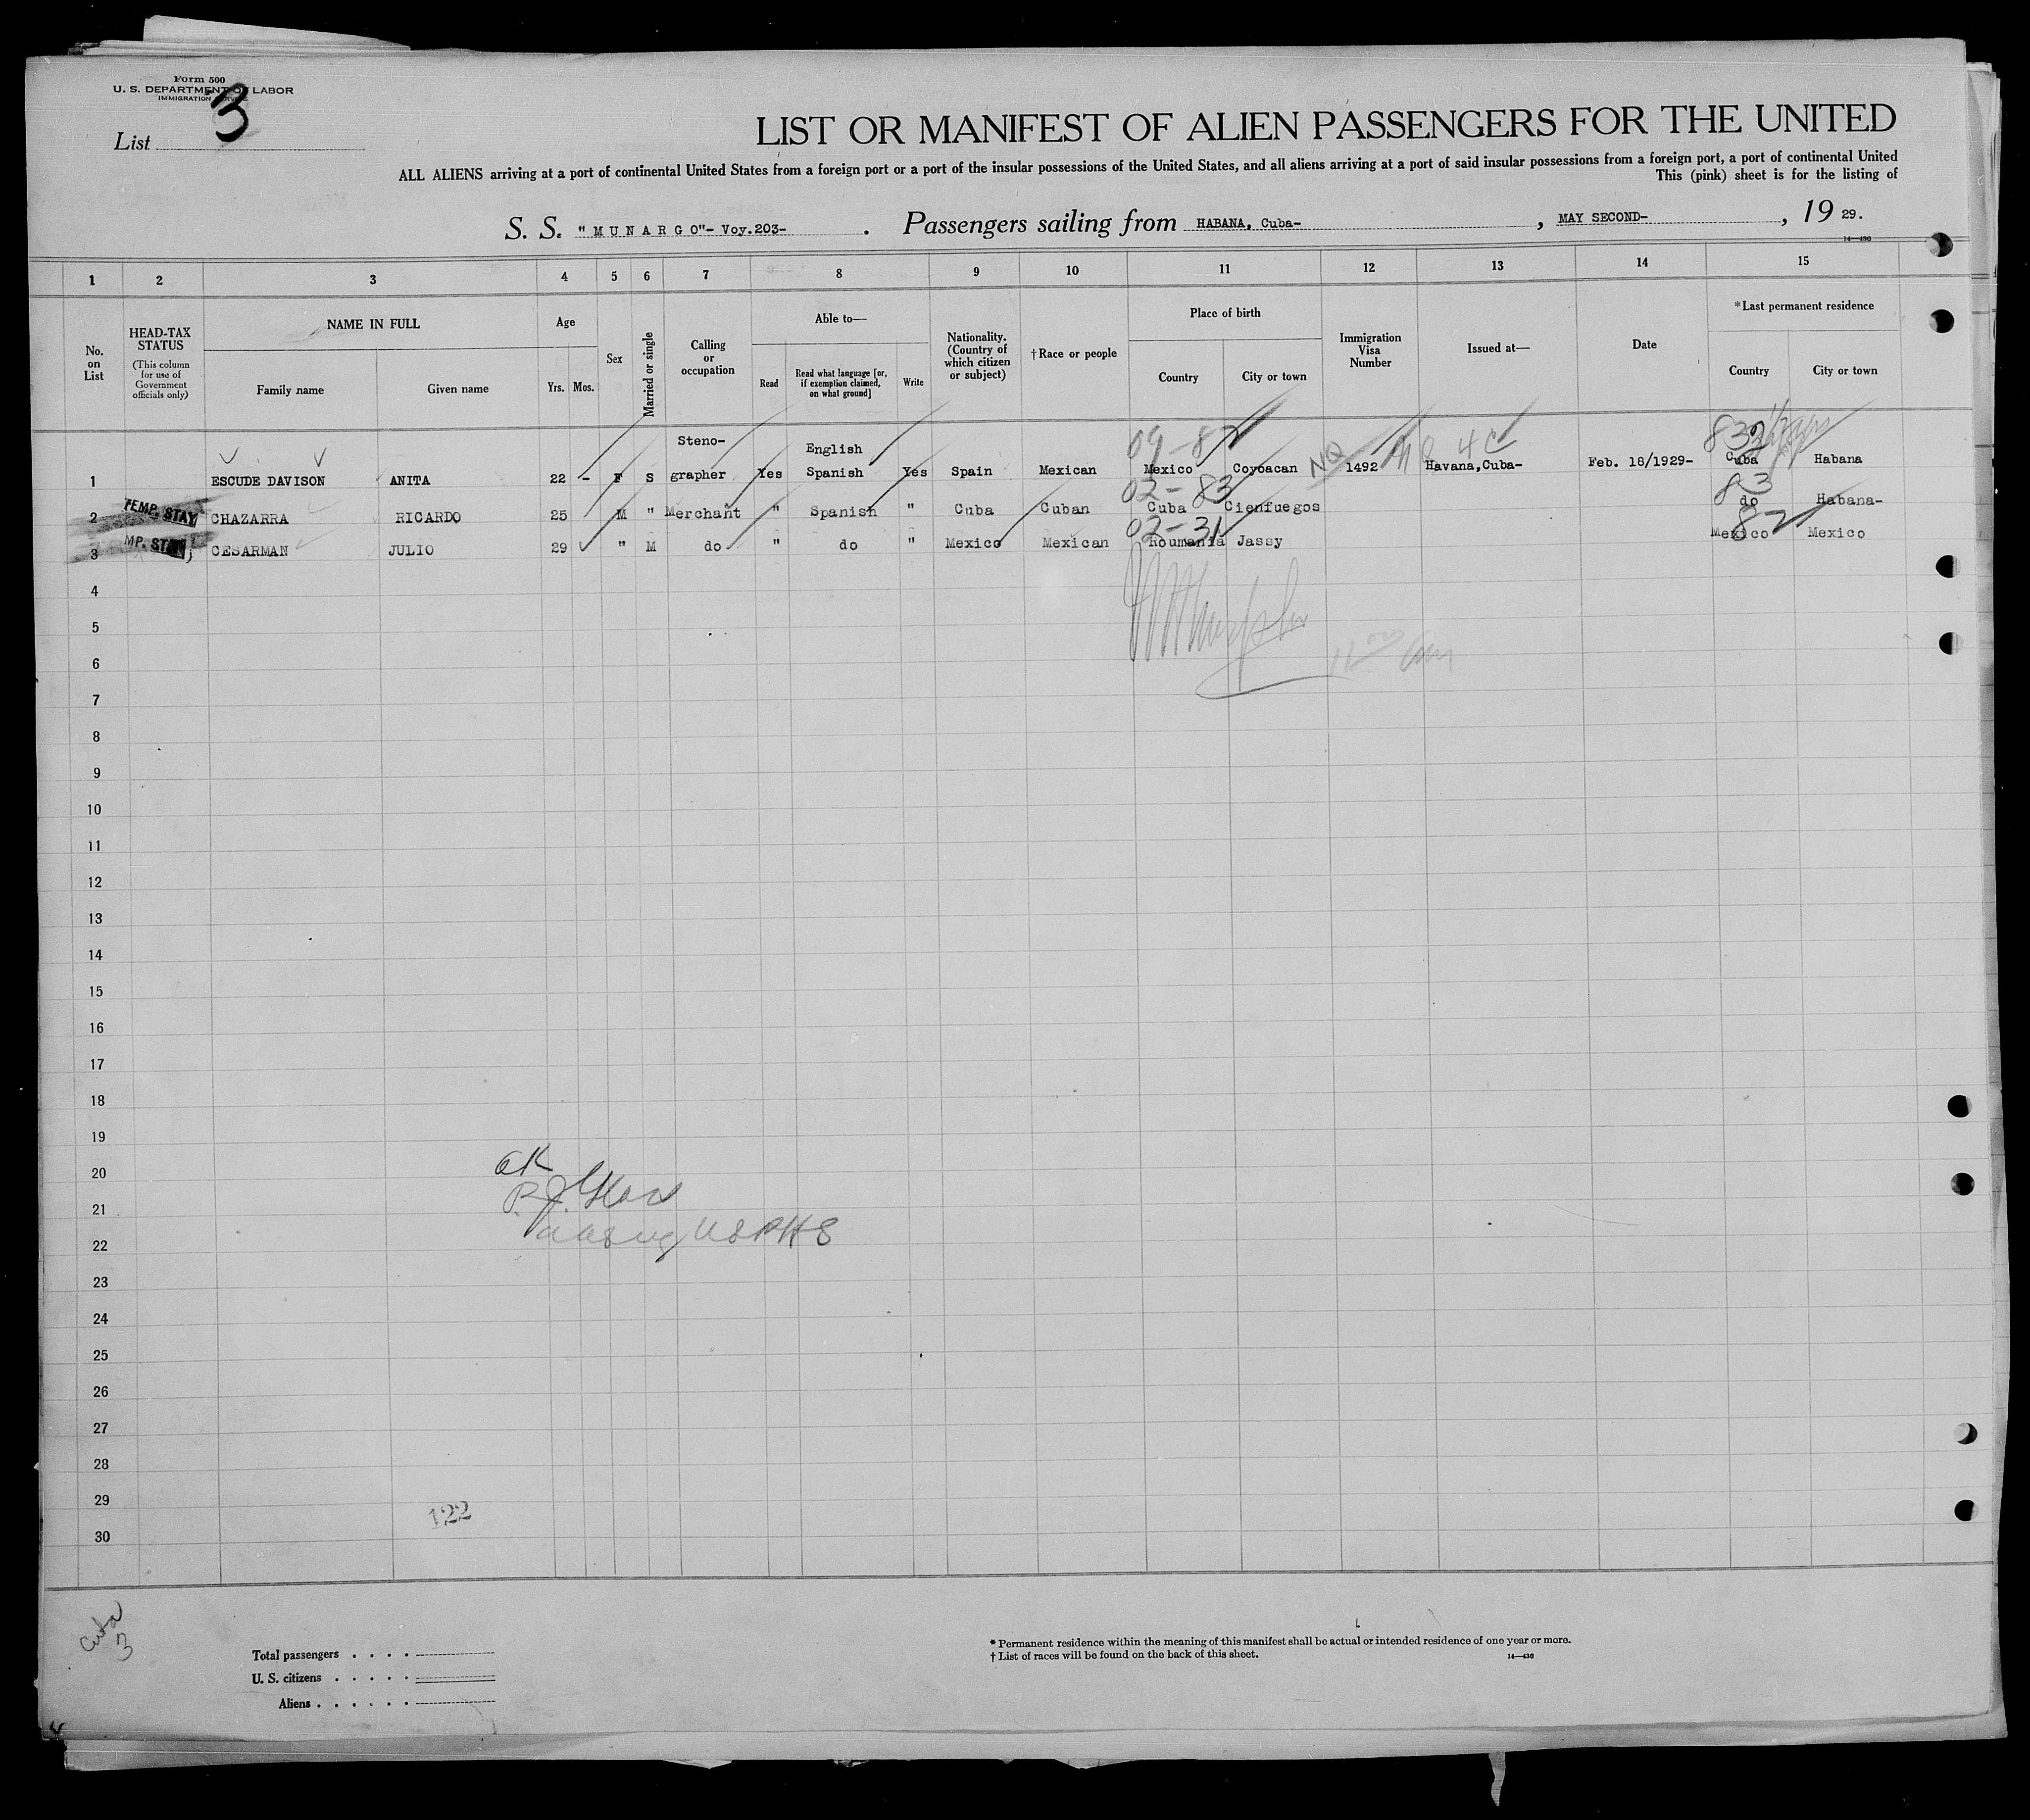 Form 500
U. S. DEPARTMENT OF LABOR
IMMIGRATION SERVICE
List 3
LIST OR MANIFEST OF ALIEN PASSENGERS FOR THE UNITED
ALL ALIENS arriving at a port of continental United States from a foreign port or a port of the insular possessions of the United States, and all aliens arriving at a port of said insular possessions from a foreign port, a port of continental United
This (pink) sheet is for the listing of
S. S. "MUNARGO"- Voy.203- . Passengers sailing from HABANA, Cuba- , MAY SECOND- , 19 29.
14—430
1 2 3 4 5 6 7 8 9 10 11 12 13 14 15
No. on List
HEAD-TAX STATUS
(This column for use of Government officials only)
NAME IN FULL
Family name
Given name
Age
Yrs. Mos.
Sex
Married or single
Calling or occupation
Able to—
Read
Read what language [or, if exemption claimed, on what ground]
Write
Nationality. (Country of which citizen or subject)
†Race or people
Place of birth
Country
City or town
Immigration Visa Number
Issued at—
Date
*Last permanent residence
Country
City or town
09-87 NQ 4C 83
1 ESCUDE DAVISON ANITA 22 - F S Steno-grapher Yes English Spanish Yes Spain Mexican Mexico Coyoacan 1492 Havana,Cuba- Feb. 18/1929- Cuba Habana
02-83 83
2 TEMP. STAY CHAZARRA RICARDO 25 M " Merchant " Spanish " Cuba Cuban Cuba Cienfuegos do Habana-
02-31 87
3 MP. STAY CESARMAN JULIO 29 " M do " do " Mexico Mexican Roumania Jassy Mexico Mexico
4
5
6
7
8
9
10
11
12
13
14
15
16
17
18
19
20 OK
21 P. J.
22 USPHS
23
24
25
26
27
28
29 122
30
Cuba
3
Total passengers . . . .
U. S. citizens . . . . .
Aliens . . . . . .
* Permanent residence within the meaning of this manifest shall be actual or intended residence of one year or more.
† List of races will be found on the back of this sheet. 14—430